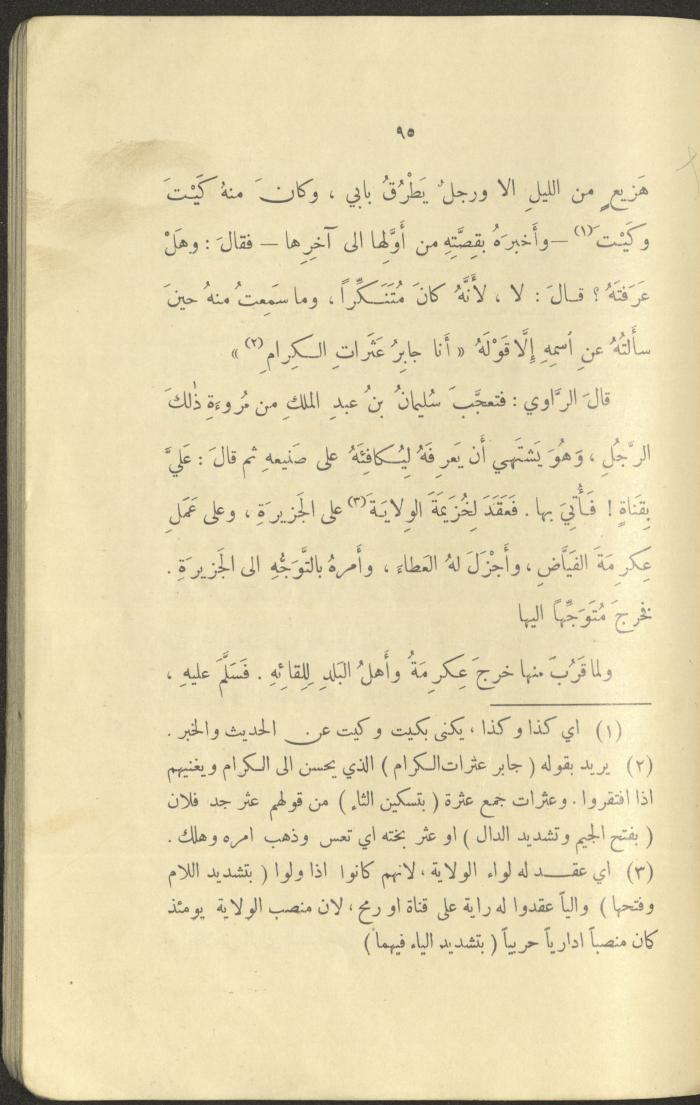 ٩٥
هَزيعٍ من الليلِ الا ورجلٌ يَطْرُقُ بابي ، وكانَ منهُ كَيْتَ
وكَيْتَ (١) — وأَخبرَهُ بقِصَّتِهِ من أَوَّلِها الى آخرِها — فقالَ : وهَلْ
عَرَفتَهُ ؟ قالَ : لا ، لأَنَّهُ كانَ مُتَنَكِّراً ، وما سَمِعتُ منهُ حينَ
سأَلتُهُ عنِ اسمِهِ إِلَّا قَوْلَهُ « أَنا جابِرُ عَثَراتِ الكِرامِ (٢) »
قالَ الرَّاوي : فتعجَّبَ سُليمانُ بنُ عبدِ الملكِ من مُروءَةِ ذٰلكَ
الرَّجُلِ ، وَهُوَ يَشتَهي أَن يَعرِفَهُ لِيُكافِئَهُ على صَنيعهِ ثم قالَ : عَلَيَّ
بِقَناةٍ ! فَأُتِيَ بها . فَعَقَدَ لِخُزَيمَةَ الوِلايَةَ (٣) على الجَزيرَةِ ، وعلى عَمَلِ
عِكرِمَةَ الفَيَّاضِ ، وأَجْزَلَ لهُ العَطاءَ ، وأَمرهُ بالتَّوَجُّهِ الى الجَزيرَةِ .
فخرجَ مُتَوَجِّهاً اليها
ولما قَرُبَ منها خرجَ عِكرِمَةُ وأَهلُ البَلَدِ لِلِقائِهِ . فَسَلَّمَ عليهِ ،
(١) اي كذا وكذا ، يكنى بكيت وكيت عن الحديث والخبر .
(٢) يريد بقوله ( جابر عثرات الكرام ) الذي يحسن الى الكرام ويغنيهم
اذا افتقروا . وعثرات جمع عثرة ( بتسكين الثاء ) من قولهم عثر جد فلان
( بفتح الجيم وتشديد الدال ) او عثر بخته اي تعس وذهب امره وهلك .
(٣) اي عقد له لواء الولاية ، لانهم كانوا اذا ولوا ( بتشديد اللام
وفتحها ) والياً عقدوا له راية على قناة او رمح ، لان منصب الولاية يومئذ
كان منصباً ادارياً حربياً ( بتشديد الياء فيهما )